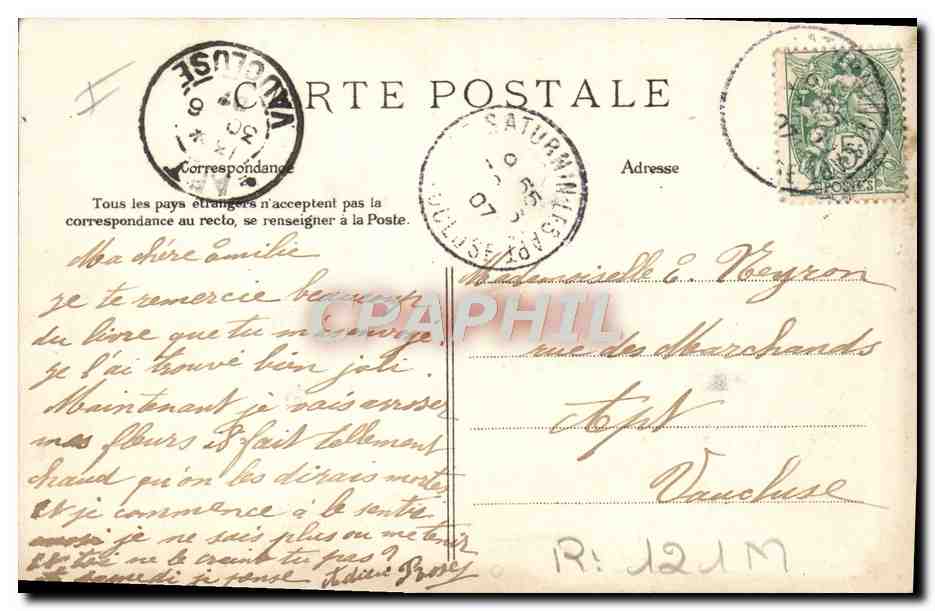 CARTE POSTALE
Correspondance
Adresse
Tous les pays étrangers n'acceptent pas la
correspondance au recto, se renseigner à la Poste.
APT
VAUCLUSE
30
SATURNIN-LES-APT
VAUCLUSE
07
5
POSTES
CPAPHIL
Ma chère Emilie
je te remercie beaucoup
du livre que tu m'as envoyé.
Je l'ai trouvé bien joli.
Maintenant je vais arroser
mes fleurs il fait tellement
chaud qu'on les dirais mortes
et je commence à le sentir
aussi je ne sais plus ou me tenir
et toi ne le crains tu pas?
samedi je pense Adieu
Mademoiselle E. Neyron
rue des Marchands
Apt
Vaucluse
R: 121M